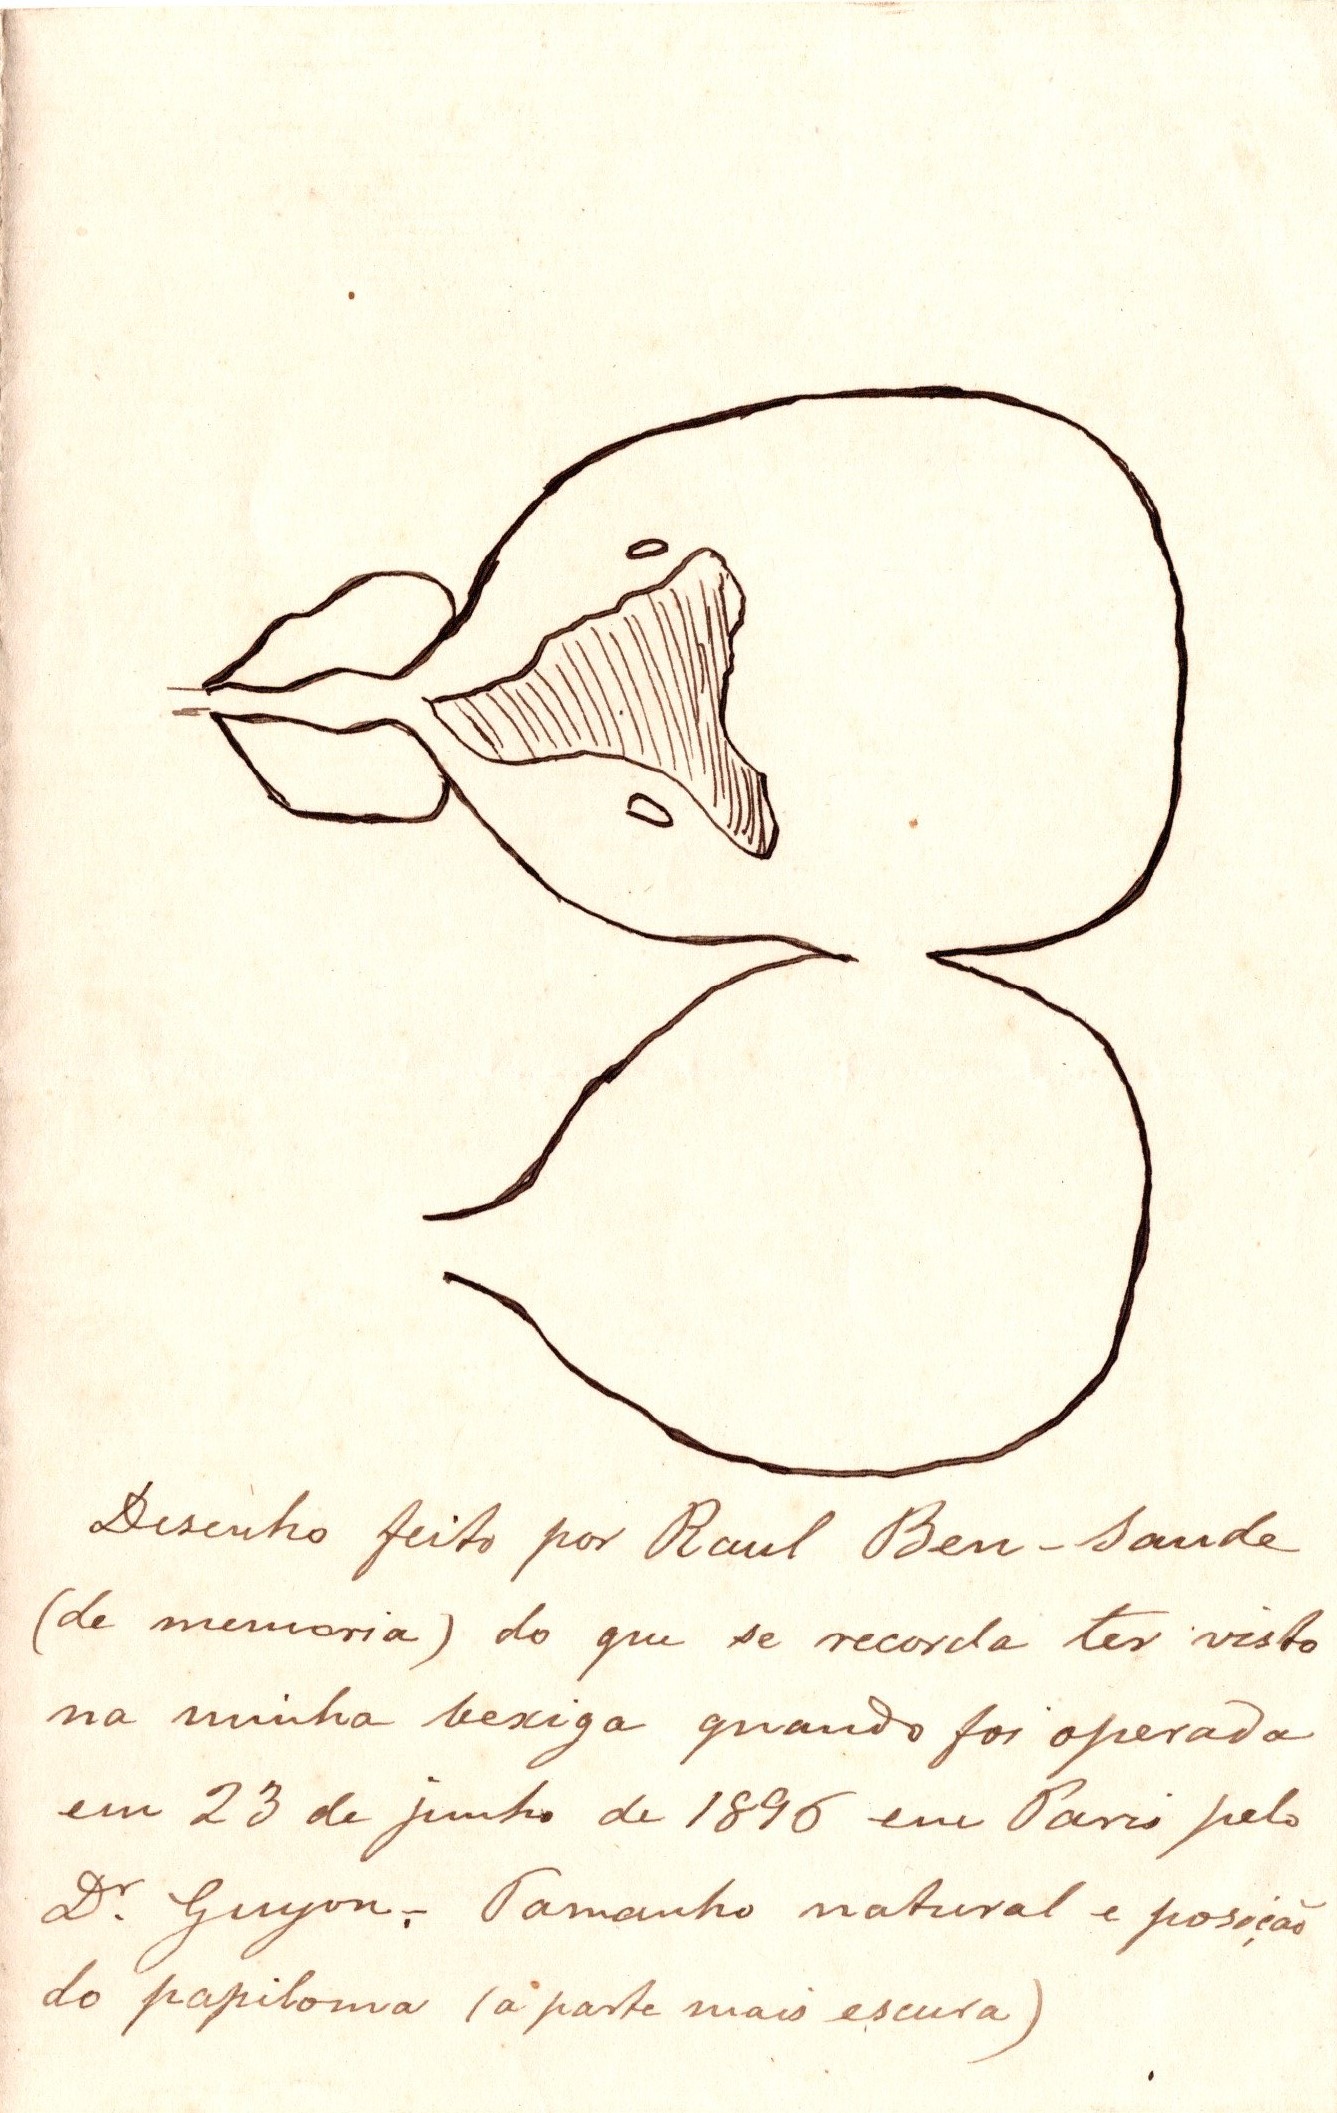 Desenho feito por Raul Ben-Saude
(de memoria) do que se recorda ter visto
na minha bexiga quando foi operada
em 23 de junho de 1896 em Paris pelo
Dr. Guyon. - Tamanho natural e posição
do papiloma (a parte mais escura)